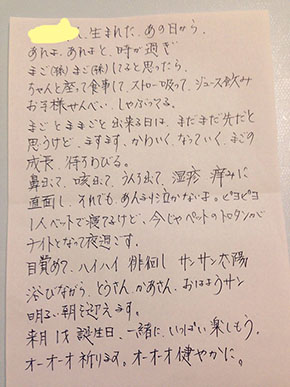 生まれた、あの日から、
あれよ、あれよと、時が過ぎ
まご(稚)まご(稚)してると思ったら、
ちゃんと座って食事して、ストロー吸って、ジュース飲み
お子様せんべい、しゃぶってる。
まごとままごと出来る日は、まだまだ先だと
思うけど、ますます、かわいく、なっていく、まごの
成長、待ちわびる。
鼻出て、咳出て、うんち出て、湿疹、痛みに
直面し、それでも、あんまり泣かないよ。ピヨピヨ
1人ベットで寝てるけど、今じゃベットの
ナイトとなって夜過ごす。
目覚めて、ハイハイ 徘徊し サンサン太陽
浴びながら、とうさん、かあさん、おはようサン
明るい朝を迎えます。
来月1才誕生日、一緒に、いっぱい楽しもう。
オーオーオ祈ります。オーオーオ健やかに。